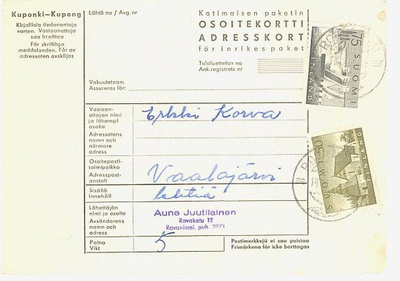 Kuponki–Kupong
Kirjallisia tiedonantoja
varten. Vastaanottaja
saa irroittaa
För skriftliga
meddelanden. Får av
adressaten avskiljas
Lähtö no / Avg. nr
Kotimaisen paketin
OSOITEKORTTI
ADRESSKORT
för inrikes paket
Tuloluettelon no
Ank.registrets nr
Vakuutetaan:
Assureras för:
Vastaan-
ottajan nimi
ja lähempi
osoite
Adressatens
namn och
närmare
adress
Erkki Korva
Osoiteposti-
toimipaikka
Adresspost-
anstalt
Vaalajärvi
Sisältö
Innehåll
Lähettäjän
nimi ja osoite
Avsändarens
namn och
adress
Aune Juutilainen
Rovakatu 12
Rovaniemi, puh.
Paino
Vikt
5
Postimerkkejä ei saa poistaa
Frimärkena får icke borttagas
75 SUOMI
SUOMI